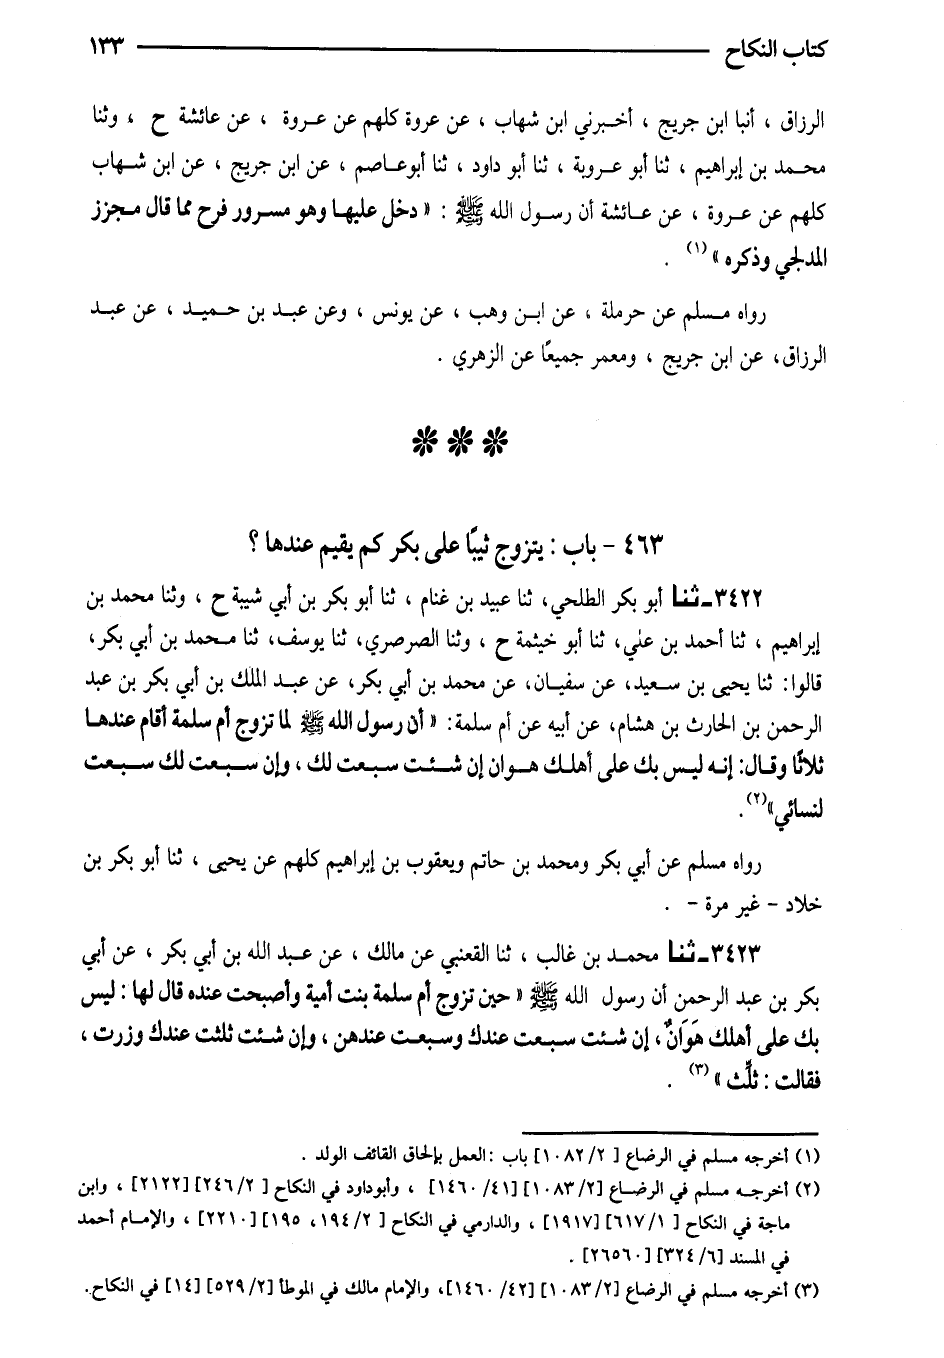 كتاب النكاح ١٣٣
الرزاق ، أنبا ابن جريج ، أخبرني ابن شهاب ، عن عروة كلهم عن عروة ، عن عائشة ح ، وثنا
محمد بن إبراهيم ، ثنا أبو عروبة ، ثنا أبو داود ، ثنا أبوعاصم ، عن ابن جريج ، عن ابن شهاب
كلهم عن عروة ، عن عائشة أن رسول الله ﷺ : « دخل عليها وهو مسرور فرح مما قال مجزز
المدلجي وذكره » (١) .
رواه مسلم عن حرملة ، عن ابن وهب ، عن يونس ، وعن عبد بن حميد ، عن عبد
الرزاق، عن ابن جريج ، ومعمر جميعًا عن الزهري .
٤٦٣ - باب : يتزوج ثيبًا على بكر كم يقيم عندها ؟
٣٤٢٢ـ ثنا أبو بكر الطلحي، ثنا عبيد بن غنام ، ثنا أبو بكر بن أبي شيبة ح ، وثنا محمد بن
إبراهيم ، ثنا أحمد بن علي، ثنا أبو خيثمة ح ، وثنا الصرصري، ثنا يوسف، ثنا محمد بن أبي بكر،
قالوا: ثنا يحيى بن سعيد، عن سفيان، عن محمد بن أبي بكر، عن عبد الملك بن أبي بكر بن عبد
الرحمن بن الحارث بن هشام، عن أبيه عن أم سلمة: « أن رسول الله ﷺ لما تزوج أم سلمة أقام عندها
ثلاثًا وقال: إنه ليس بك على أهلك هوان إن شئت سبعت لك ، وإن سبعت لك سبعت
لنسائي»(٢).
رواه مسلم عن أبي بكر ومحمد بن حاتم ويعقوب بن إبراهيم كلهم عن يحيى ، ثنا أبو بكر بن
خلاد - غير مرة - .
٣٤٢٣ـ ثنا محمد بن غالب ، ثنا القعنبي عن مالك ، عن عبد الله بن أبي بكر ، عن أبي
بكر بن عبد الرحمن أن رسول الله ﷺ « حين تزوج أم سلمة بنت أمية وأصبحت عنده قال لها : ليس
بك على أهلك هَوَانٌ ، إن شئت سبعت عندك وسبعت عندهن ، وإن شئت ثلثت عندك وزرت ،
فقالت : ثلِّث » (٣) .
(١) أخرجه مسلم في الرضاع [ ٢/ ١٠٨٢] باب :العمل بإلحاق القائف الولد .
(٢) أخرجه مسلم في الرضاع [٢/ ١٠٨٣] [٤١/ ١٤٦٠] ، وأبوداود في النكاح [ ٢/ ٢٤٦] [٢١٢٢] ، وابن
ماجة في النكاح [ ١/ ٦١٧] [١٩١٧] ، والدارمي في النكاح [ ٢/ ١٩٤، ١٩٥] [٢٢١٠] ، والإمام أحمد
في المسند [٦/ ٣٢٤] [٢٦٥٦٠] .
(٣) أخرجه مسلم في الرضاع [٢/ ١٠٨٣] [٤٢/ ١٤٦٠]، والإمام مالك في الموطأ [٢/ ٥٢٩] [١٤] في النكاح.